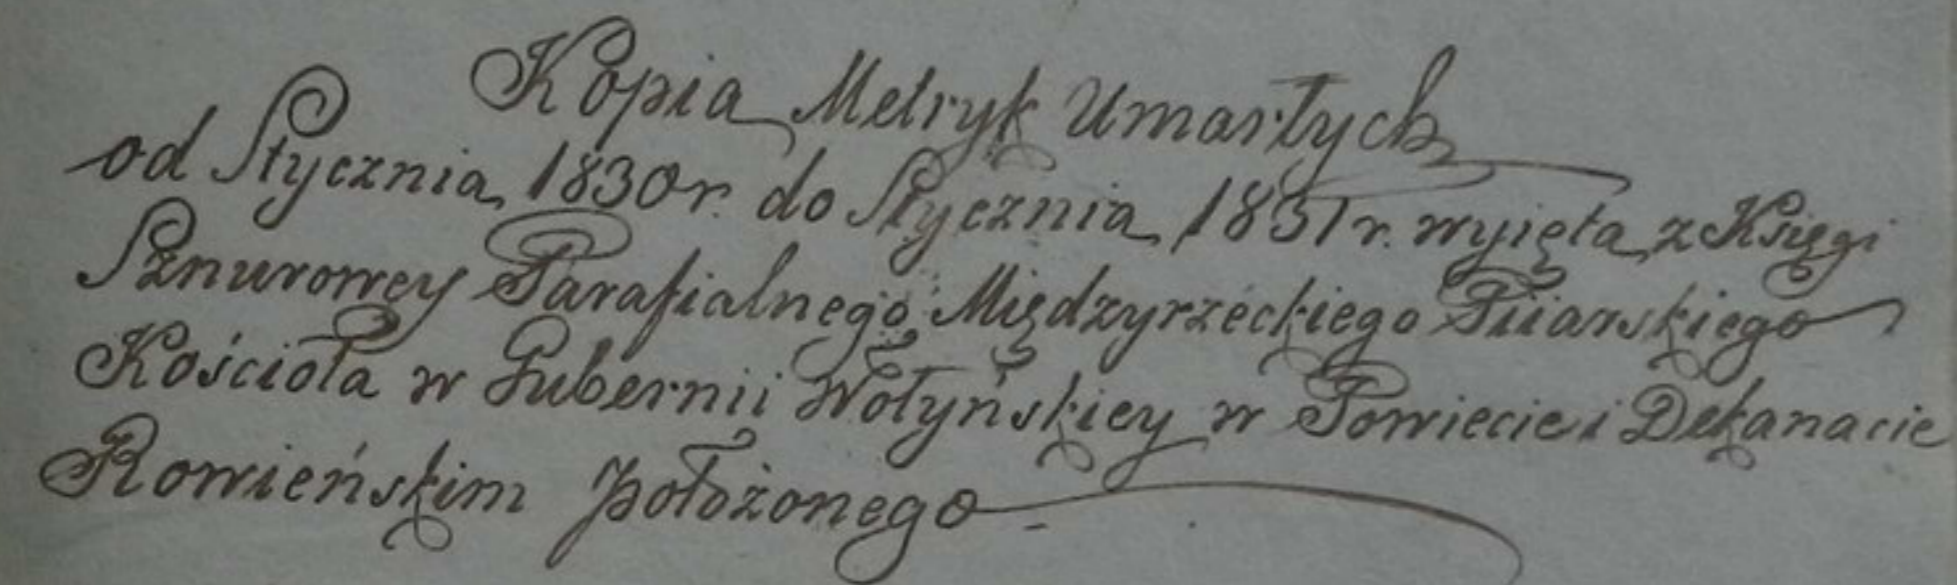 Kopia Metryk Umarłych
od Stycznia 1830 r. do Stycznia 1831 r. wyięta z Księgi
Sznurowey Parafialnego Międzyrzéckiego Piiarskiego
Kościoła w Gubernii Wołyńskiey w Powiecie i Dekanacie
Rowieńskim położonego